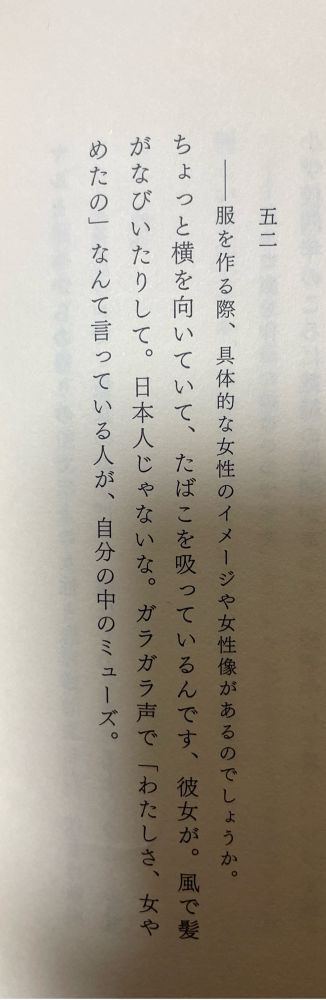 五二
――服を作る際、具体的な女性のイメージや女性像があるのでしょうか。
ちょっと横を向いていて、たばこを吸っているんです、彼女が。風で髪
がなびいたりして。日本人じゃないな。ガラガラ声で「わたしさ、女や
めたの」なんて言っている人が、自分の中のミューズ。